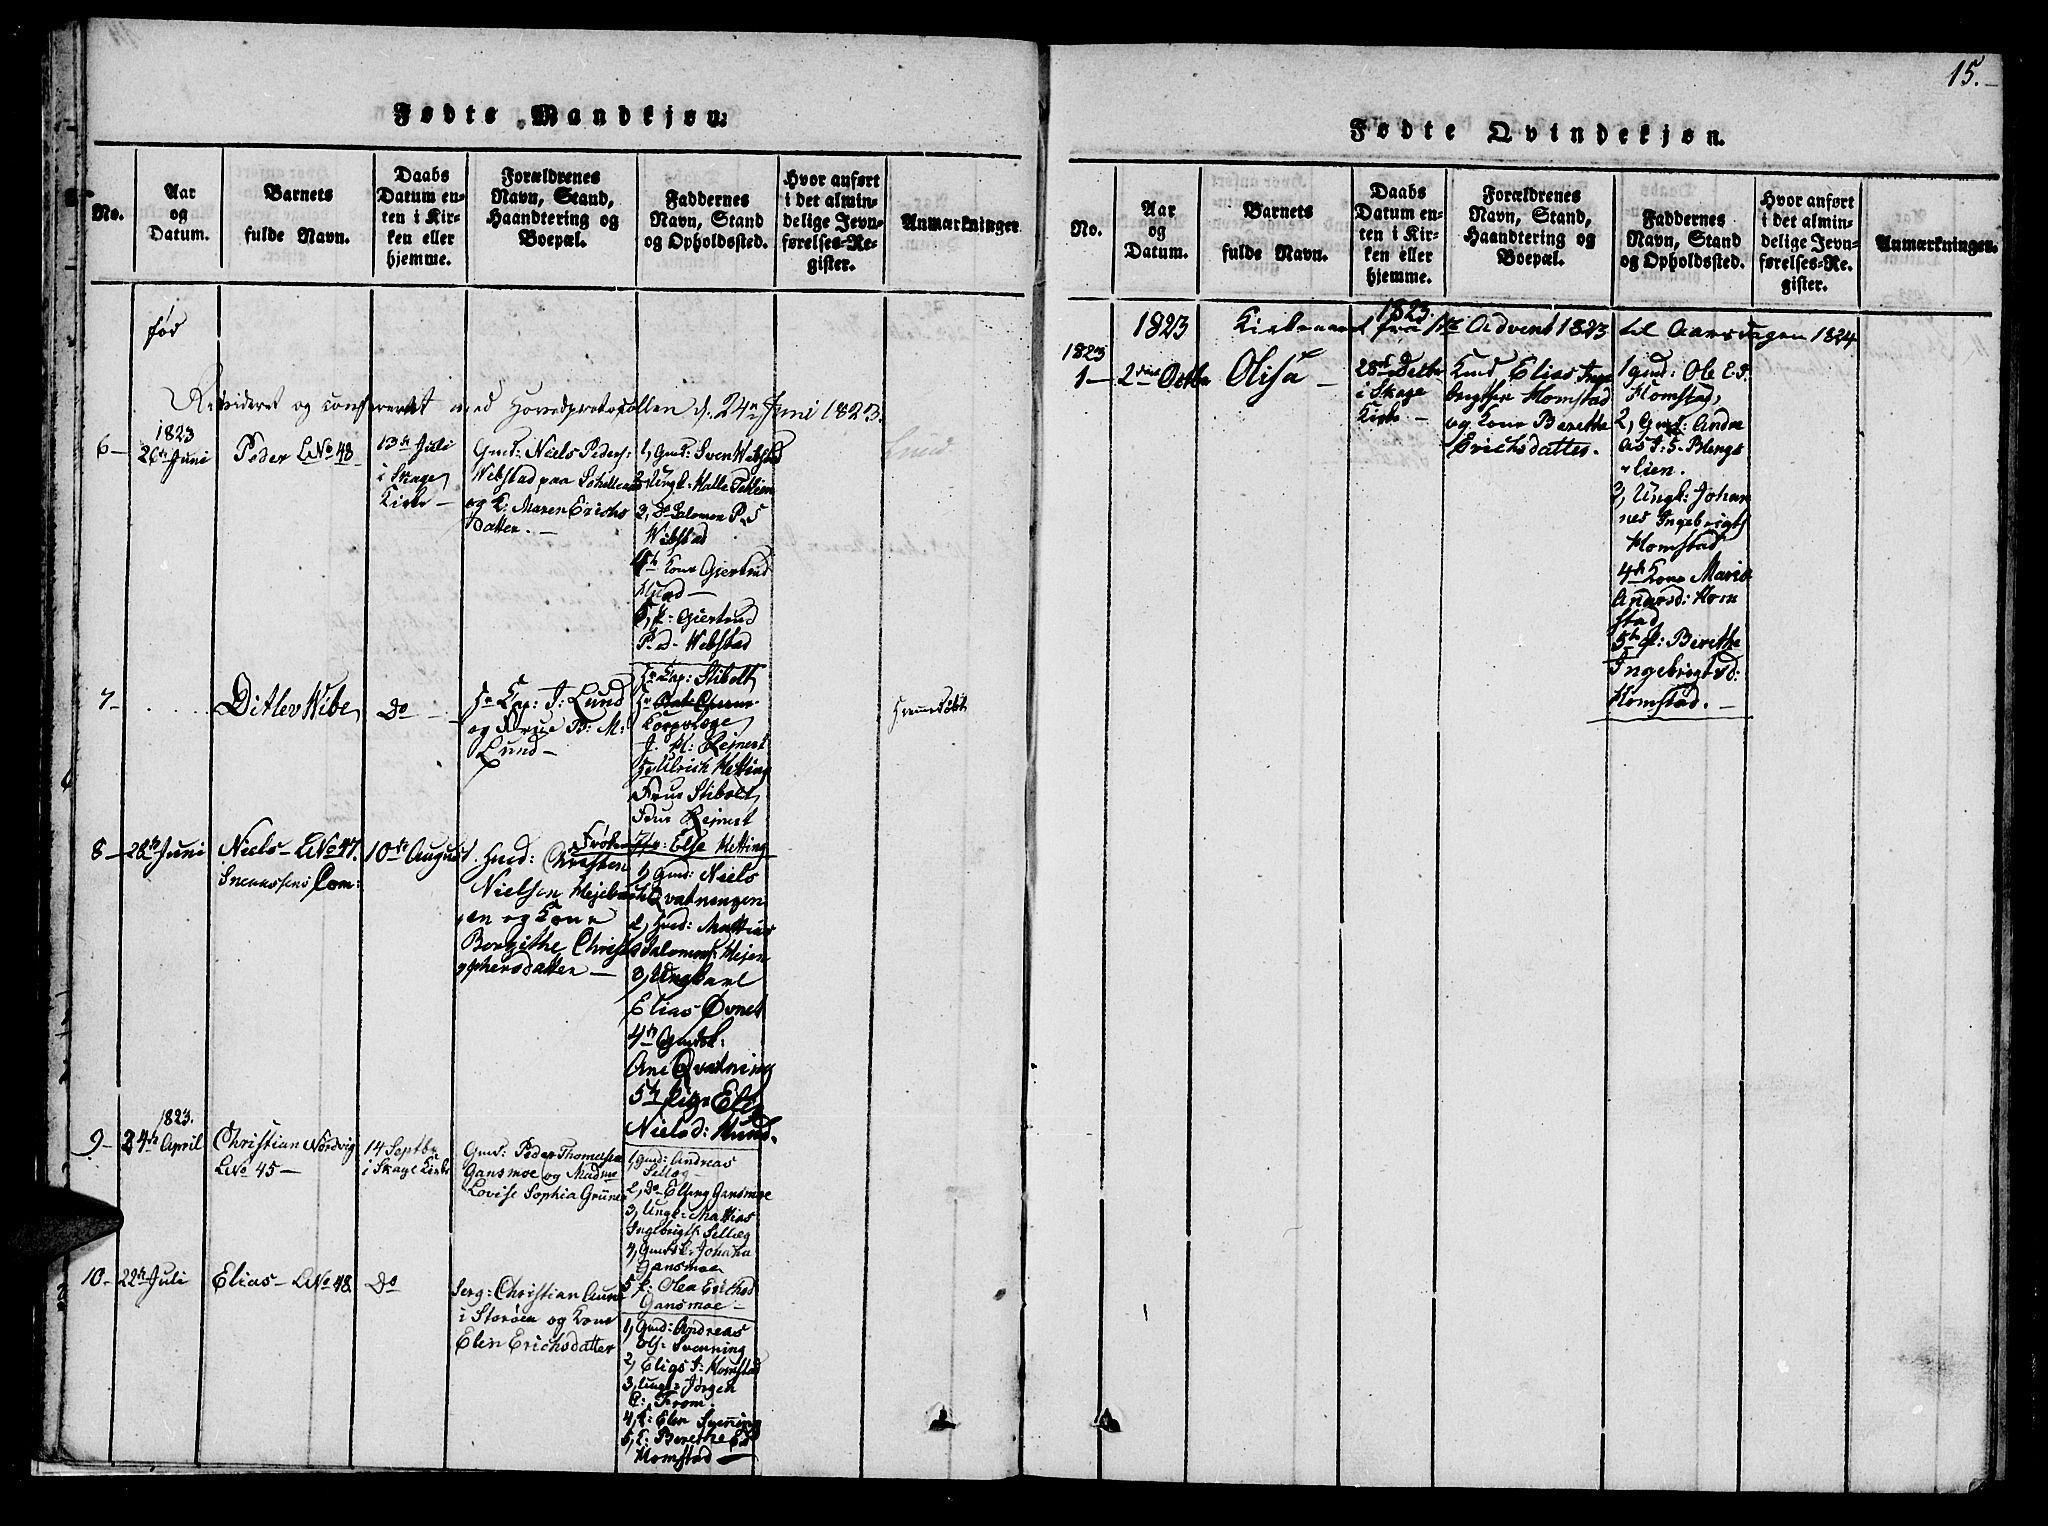 Fødte Mandkjøn.
No.
Aar
og
Datum.
Barnets
fulde Navn.
Daabs
Datum en-
ten i Kir-
ken eller
hjemme.
Forældrenes
Navn, Stand,
Haandtering og
Boepæl.
Faddernes
Navn, Stand
og Opholdssted.
Hvor anført
i det almin-
delige Jevn-
førelses-Re-
gister.
Anmærkninger
før
Revideret og confereret med Hovedprotocollen d. 24n Juni 1823.
6-
1823
26th Juni
Peder LNo 48
13th Juli
i Skage
Kirke-
Gmd: Niels Peders:
Webstad paa
og K: Maren Erichs
datter.-
1, Gmd: Sven Webstad
2, Ungk: Halle
3, Do Salomon P.S
Webstad
4th Kone Gjertrud
5, P: Giertrud
Ped- Webstad
7-
Ditlev Wibe
Do -
Hr Cap: J: Lund
og Frue B: M:
Lund-
Hr Cap: Stibolt
Hr
J. H: Rejnert
Hr Ulrich Hetting
Frue Stibolt
Frue Rejnert
Frøken Else Hetting
Hjemmedøbt
8-
28th Juni
Niels- LNo 47.
10th August
Hud: Christen
Nielsen
og Kone
Borgithe Christo
phersdatter-
1, Gmd: Niels
Qvatningen
2, Hud: Mattias
Salomons:
3, Ungkarl
Elias Øvnet
4th Gmdsk:
Ane Qvatning
5th Pige Elen
Nielsd: Hund.
9-
1823.
24th April
Christian Nordvig
LNo 45-
14 Septbr
i Skage Kirke
Gmd: Peder Thomessen
Gansmoe og Madme
Lovise Sophia Grüner
1, gmd: Andreas
Selleg-
2, Do Elling Gansmoe
3, Ungk: Mattias
Ingebrigts: Selleg
4, Gmdsk: Johana
Gansmoe
5 P: Olea Erichsd
Gansmoe-
10-
22th Juli
Elias- LNo 48
Do
Serg: Christian Aune
i Storøen og Kone
Elen Erichsdatter
1, Gmd: Andreas
Ols: Svenning
2, Elias I: Homstad
3, Ungk: Jørgen
C: From.
4, K: Elen Svenning
5, P: Berethe Ed
Homstad-
15.-
Fødte Qvindekjøn.
No.
Aar
og
Datum.
Barnets
fulde Navn.
Daabs
Datum en-
ten i Kir-
ken eller
hjemme.
Forældrenes
Navn, Stand,
Haandtering og
Boepæl.
Faddernes
Navn, Stand
og Opholdssted.
Hvor anført
i det almin-
delige Jevn-
førelses-Re-
gister.
Anmærkninger.
1823 Kirkeaaret fra 1ste Advent 1823 til Aarsdagen 1824
1823
1-
2den Decbr
Olisa-
1823.
28de Decbr
i Skage
Kirke-
Huud Elias Inge
brigtsen Homstad
og Kone Berethe
Erichsdatter.
1 gmd: Ole E.S.
Homstad,
2, Gmd: Andre
as I:S.
3, Ungk: Johan
nes Ingebrigts
Homstad
4th Kone Marit
Andersd: Hom
stad
5th P: Berethe
Ingebrigtsd:
Homstad.-